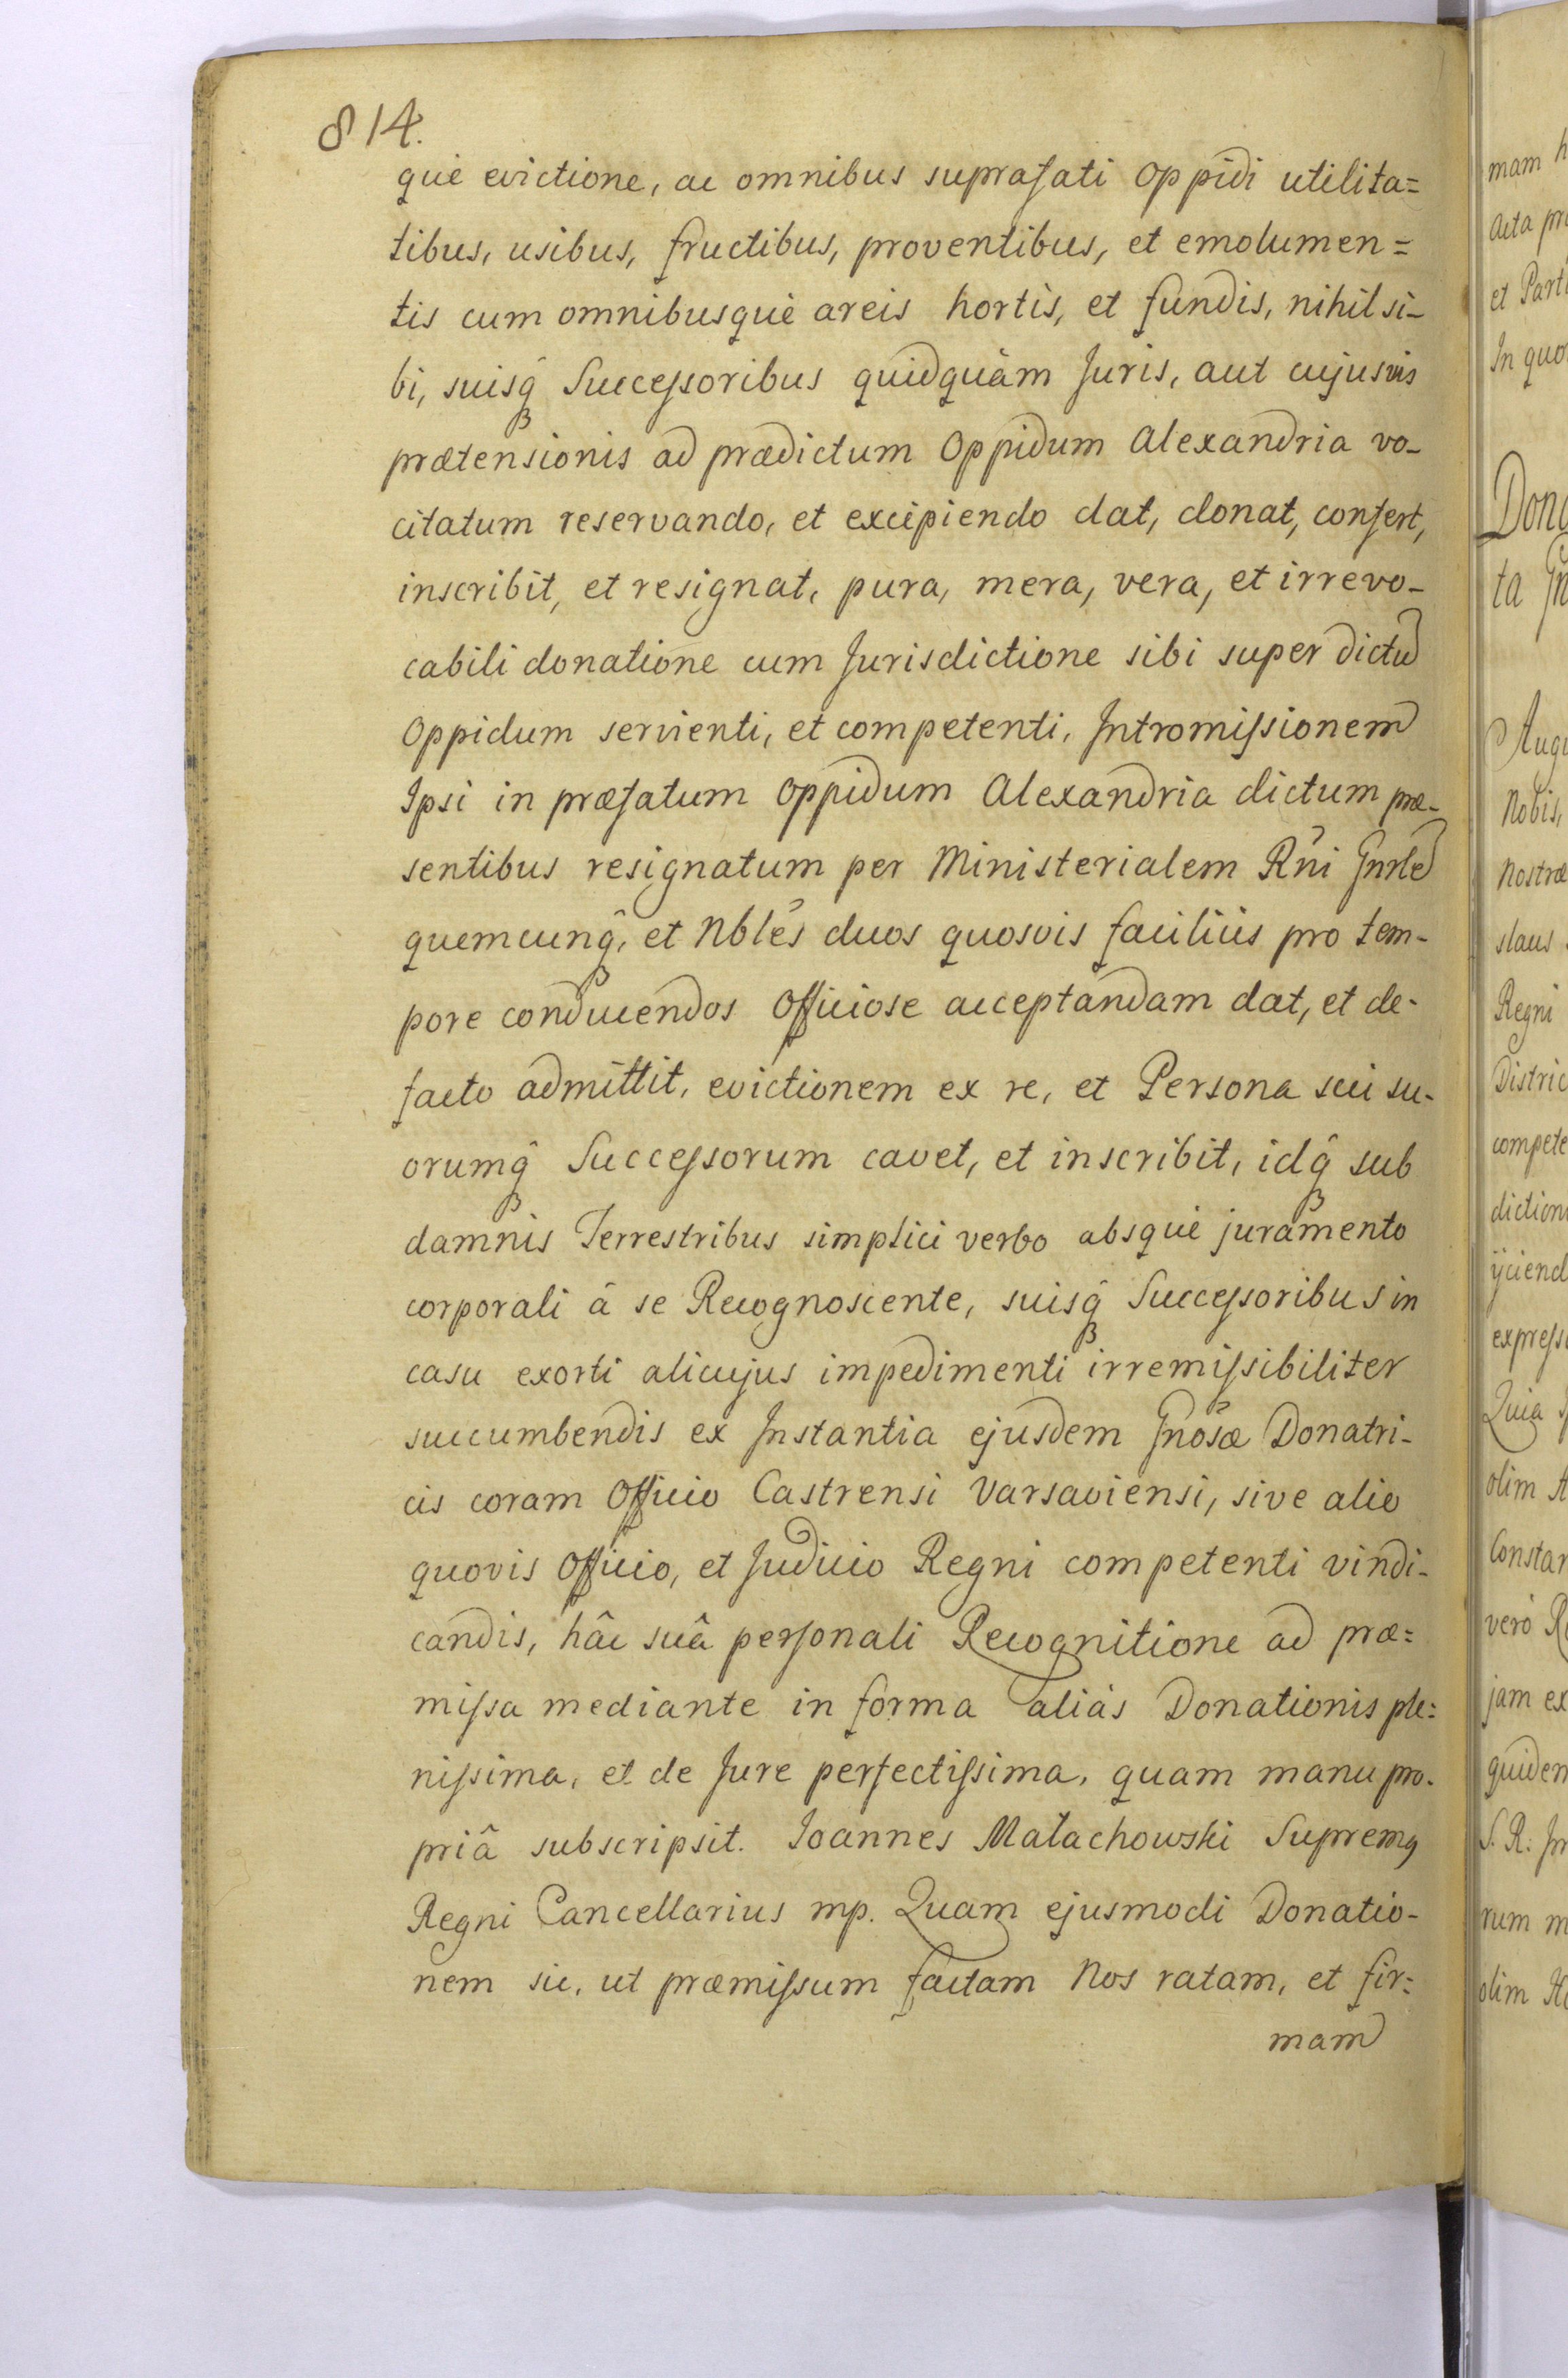 814.
què evictione, ac omnibus suprafati Oppidi utilita=
tibus, usibus, fructibus, proventibus, et emolumen=
tis cum omnibusquè areis hortis, et fundis, nihil si-
bi, suisq̂ Successoribus quidquàm Juris, aut cujusvis
prætensionis ad prædictum Oppidum Alexandria vo-
citatum reservando, et excipiendo dat, donat, confert,
inscribit, et resignat, pura, mera, vera, et irrevo-
cabili donatione cum Jurisdictione sibi super dictū
Oppidum servienti, et competenti, Intromissionem
Ipsi in præfatum Oppidum Alexandria dictum præ-
sentibus resignatum per Ministerialem Rñi Gnrlē
quemcunq̂, et Nblẽs duos quosvis faciliùs pro tem-
pore conducendos Officiose acceptandam dat, et de-
facto admittit, evictionem ex re, et Persona sui su-
orumq̂ Successorum cavet, et inscribit, idq̂ sub
damnis Terrestribus simplici verbo absquè juramento
corporali â se Recognoscente, suisq̂ Successoribus in
casu exorti alicujus impedimenti irremissibiliter
succumbendis ex Instantia ejusdem Gñosæ Donatri-
cis coram Officio Castrensi Varsaviensi, sive alio
quovis Officio, et Judicio Regni competenti vindi-
candis, hâc suâ personali Recognitione ad præ=
missa mediante in forma aliàs Donationis ple=
nissima, et de Jure perfectissima, quam manu pro-
priâ subscripsit. Ioannes Małachowski Supremꝯ
Regni Cancellarius mp. Quam ejusmodi Donatio-
nem sic, ut præmissum factam Nos ratam, et fir=
mam
mam
Acta
et
In
ta
Nobis,
Nostræ
slaus
Regni
olim
verò
jam ex
S. R:
rum
olim